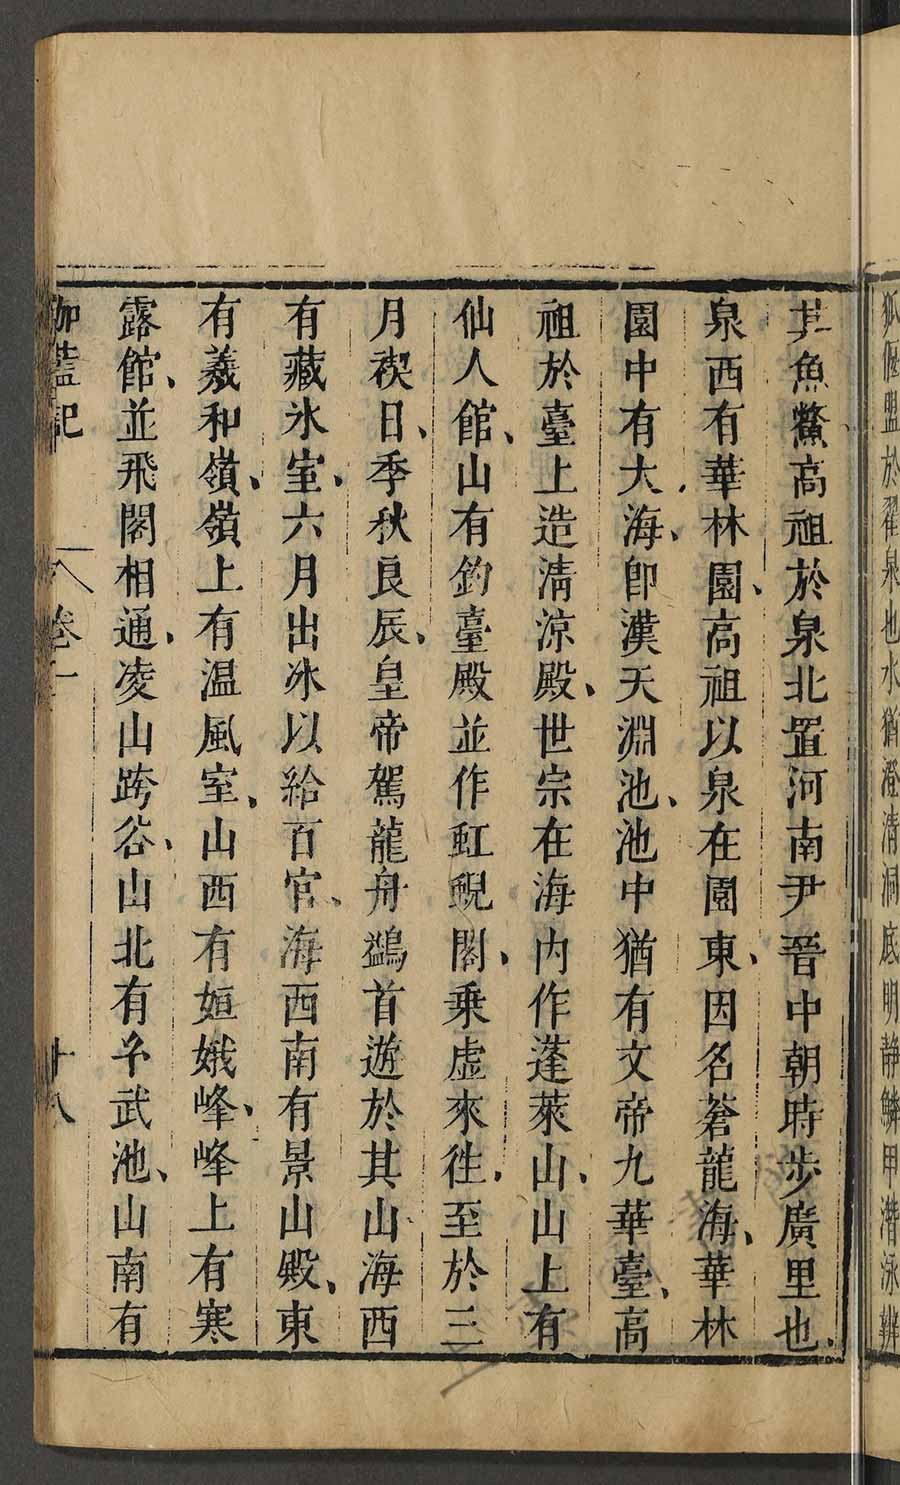 狐偃盟於翟泉也水猶澄清洞底明静鱗甲潛泳辨
其魚鱉高祖於泉北置河南尹晉中朝時步廣里也
泉西有華林園高祖以泉在園東因名蒼龍海華林
園中有大海卽漢天淵池池中猶有文帝九華臺高
祖於臺上造清凉殿世宗在海内作蓬萊山山上有
仙人館山有釣臺殿並作虹蜺閣乘虛來往至於三
月禊日季秋良辰皇帝駕龍舟鷁首遊於其山海西
有藏氷室六月出氷以給百官海西南有景山殿東
有羲和嶺嶺上有温風室山西有姮娥峰峰上有寒
露館並飛閣相通凌山跨谷山北有玄武池山南有
伽藍記 卷一 十八